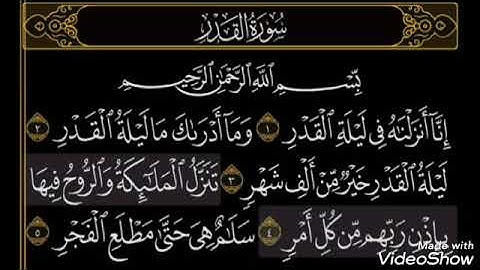 سُورَةُ القَدۡرِ
بِسۡمِ ٱللَّهِ ٱلرَّحۡمَٰنِ ٱلرَّحِيمِ
إِنَّآ أَنزَلۡنَٰهُ فِي لَيۡلَةِ ٱلۡقَدۡرِ ١ وَمَآ أَدۡرَىٰكَ مَا لَيۡلَةُ ٱلۡقَدۡرِ ٢
لَيۡلَةُ ٱلۡقَدۡرِ خَيۡرٞ مِّنۡ أَلۡفِ شَهۡرٖ ٣ تَنَزَّلُ ٱلۡمَلَٰٓئِكَةُ وَٱلرُّوحُ فِيهَا
بِإِذۡنِ رَبِّهِم مِّن كُلِّ أَمۡرٖ ٤ سَلَٰمٌ هِيَ حَتَّىٰ مَطۡلَعِ ٱلۡفَجۡرِ ٥
Made with
VideoShow